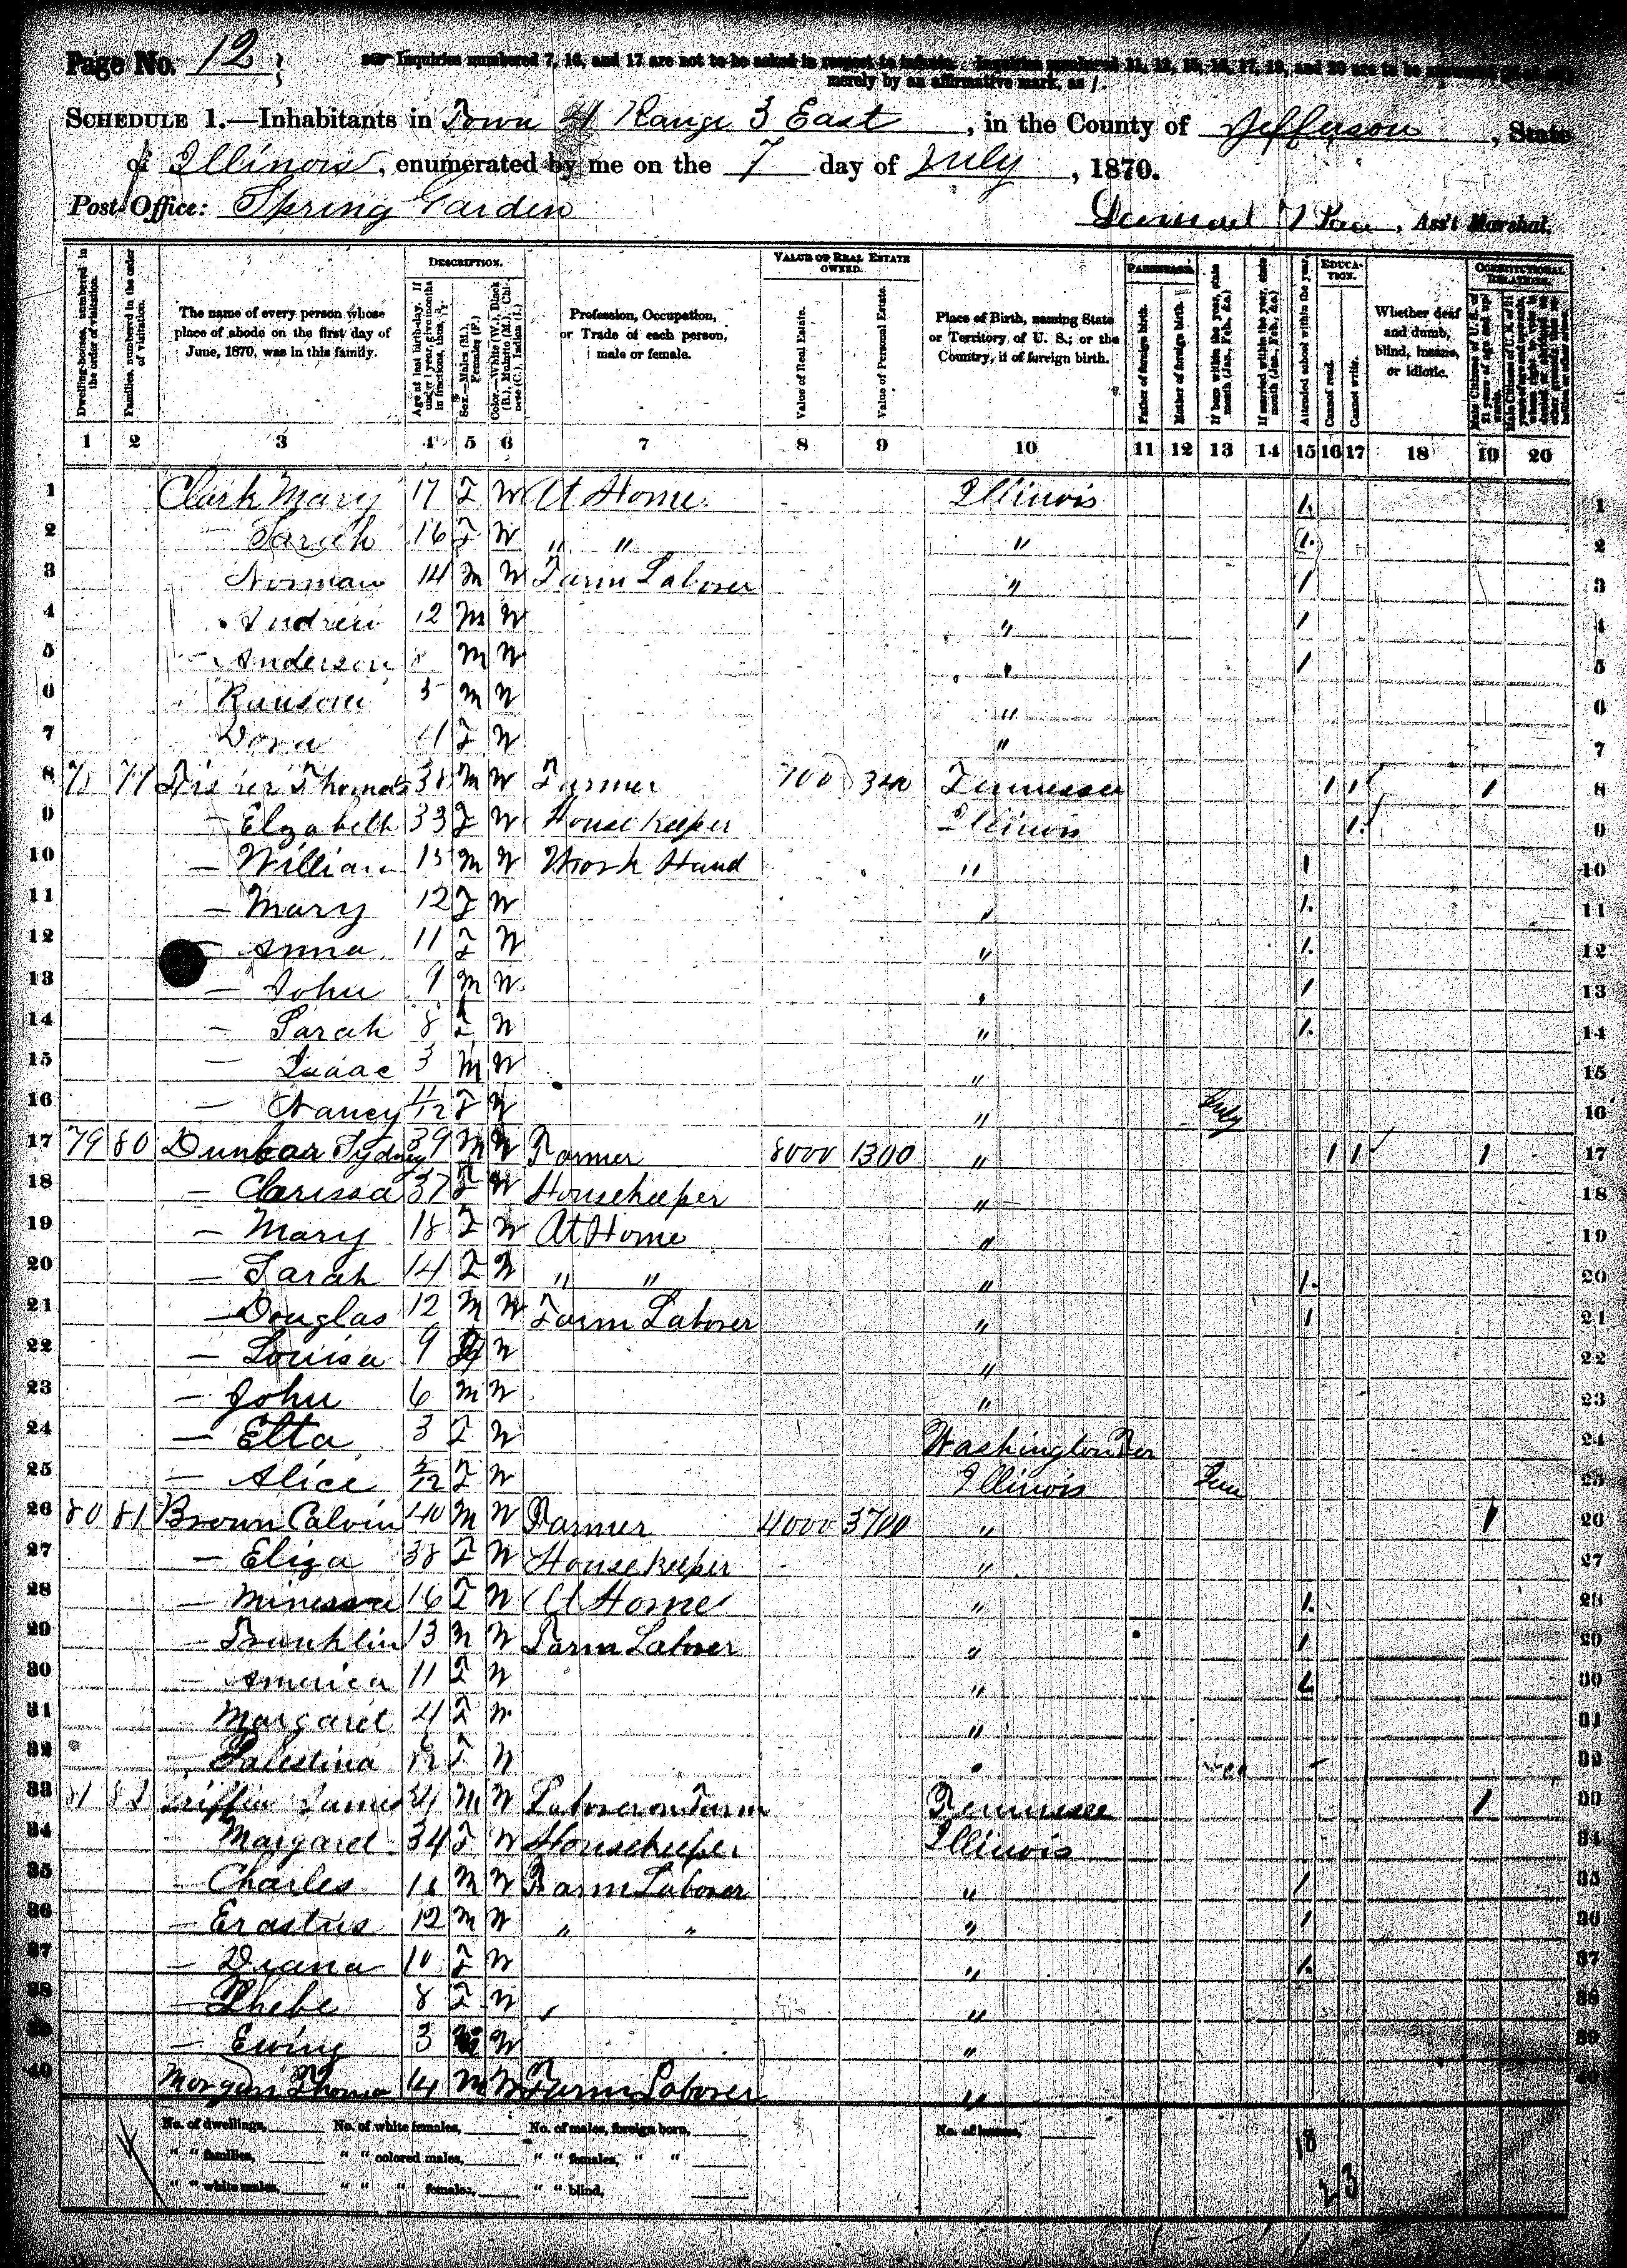 Page No. 12
Inquiries numbered 7, 16, and 17 are not to be asked in respect to infants. Inquiries numbered 11, 12, 15, 16, 17, 19, and 20 are to be answered
merely by an affirmative mark, as /.
SCHEDULE 1.—Inhabitants in Town 4 Range 3 East, in the County of Jefferson, State
of Illinois, enumerated by me on the 7 day of July, 1870.
Post Office: Spring Garden
, Ass't Marshal.
DESCRIPTION. VALUE OF REAL ESTATE OWNED. PARENTAGE. EDUCATION. CONSTITUTIONAL RELATIONS.
Dwelling-houses, numbered in the order of visitation.
Families, numbered in the order of visitation.
The name of every person whose place of abode on the first day of June, 1870, was in this family.
Age at last birth-day. If under 1 year, give months in fractions, thus,
Sex.—Males (M.), Females (F.)
Color.—White (W.), Black (B.), Mulatto (M.), Chinese (C.), Indian (I.)
Profession, Occupation, or Trade of each person, male or female.
Value of Real Estate.
Value of Personal Estate.
Place of Birth, naming State or Territory of U. S.; or the Country, if of foreign birth.
Father of foreign birth.
Mother of foreign birth.
If born within the year, state month (Jan., Feb., &c.)
If married within the year, state month (Jan., Feb., &c.)
Attended school within the year.
Cannot read.
Cannot write.
Whether deaf and dumb, blind, insane, or idiotic.
Male Citizens of U. S. of 21 years of age and upwards.
1 2 3 4 5 6 7 8 9 10 11 12 13 14 15 16 17 18 19 20
1 Clark Mary 17 F W At Home Illinois 1 1
2 — Sarah 16 F W " " " 1 2
3 Norman 14 M W Farm Laborer " 1 3
4 Andrew 12 M W " 1 4
5 — Anderson 8 M W " 1 5
6 Ransom 5 M W " 6
7 Dora F W " 7
8 Thomas 38 M W Farmer 700 340 Tennessee 1 1 1 8
9 — Elzabeth 33 F W House Keeper Illinois 1 9
10 — William 15 M W Work Hand " 1 10
11 — Mary 12 F W " 1 11
12 — Anna 11 F W " 1 12
13 — John 9 M W " 1 13
14 — Sarah 8 F W " 1 14
15 — Isaac 3 M W " 15
16 — Nancy F W " July 16
17 79 80 Dunbar Sydney 39 M W Farmer 8000 1300 " 1 1 1 17
18 — Clarissa 37 F W Housekeeper " 18
19 — Mary 18 F W At Home " 19
20 — Sarah 14 F W " " " 1 20
21 — Douglas 12 M W Farm Laborer " 1 21
22 — Louisa 9 W " 22
23 — John 6 M W " 23
24 — Etta 3 F W Washington Ter 24
25 — Alice F W Illinois 25
26 80 81 Brown Calvin 40 M W Farmer 4000 3700 " 1 26
27 — Eliza 38 F W House keeper " 27
28 — 16 F W At Home " 1 28
29 — Franklin 13 M W Farm Laborer " 1 29
30 — America 11 F W " 1 30
31 Margaret 4 F W " 31
32 Palestina F W " 32
33 81 82 Griffin James M W Laborer on Farm Tennessee 1 33
34 — Margaret 34 F W Housekeeper Illinois 34
35 — Charles M W Farm Laborer " 1 35
36 — Erastus 12 M W " " " 1 36
37 — Diana 10 F W " 1 37
38 — Phebe 8 F W " 38
39 — Ewing 3 W " 39
40 Morgan Thomas 14 M W Farm Laborer " 40
No. of dwellings, No. of white females, No. of males, foreign born, No. of
" " families, " " colored males, " " females, " "
" " white males, " " " females, " " blind,
18
23